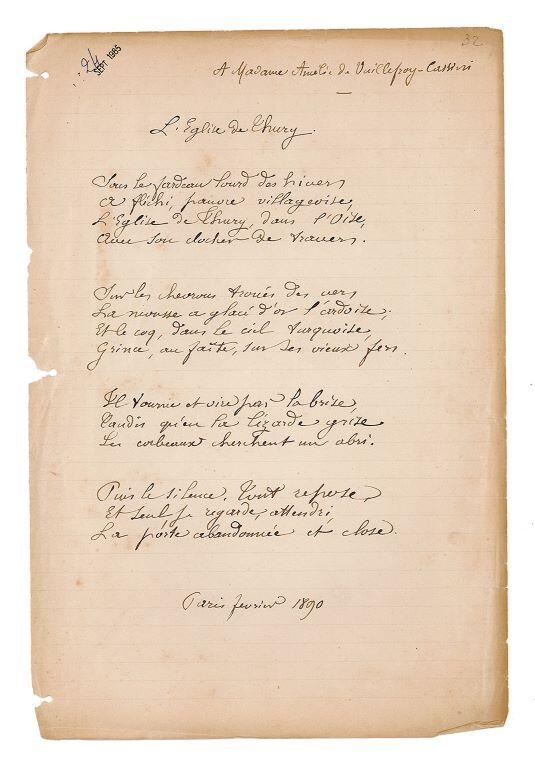 32
24
SEPT 1985
A Madame Amélie de Vuillefroy-Cassini
L'Eglise de Thury.
Sous le fardeau lourd des hivers
A fléchi, pauvre villageoise,
L'Eglise de Thury, dans l'Oise,
Avec son clocher de travers.
Sur les chevrons troués des vers
La mousse a glacé d'or l'ardoise,
Et le coq, dans le ciel turquoise,
Grince, au faîte, sur ses vieux fers.
Il tourne et vire par la brise,
Tandis qu'en la lézarde grise
Les corbeaux cherchent un abri.
Puis le silence. Tout repose,
Et seul je regarde, attendri,
La porte abandonnée et close.
Paris février 1890